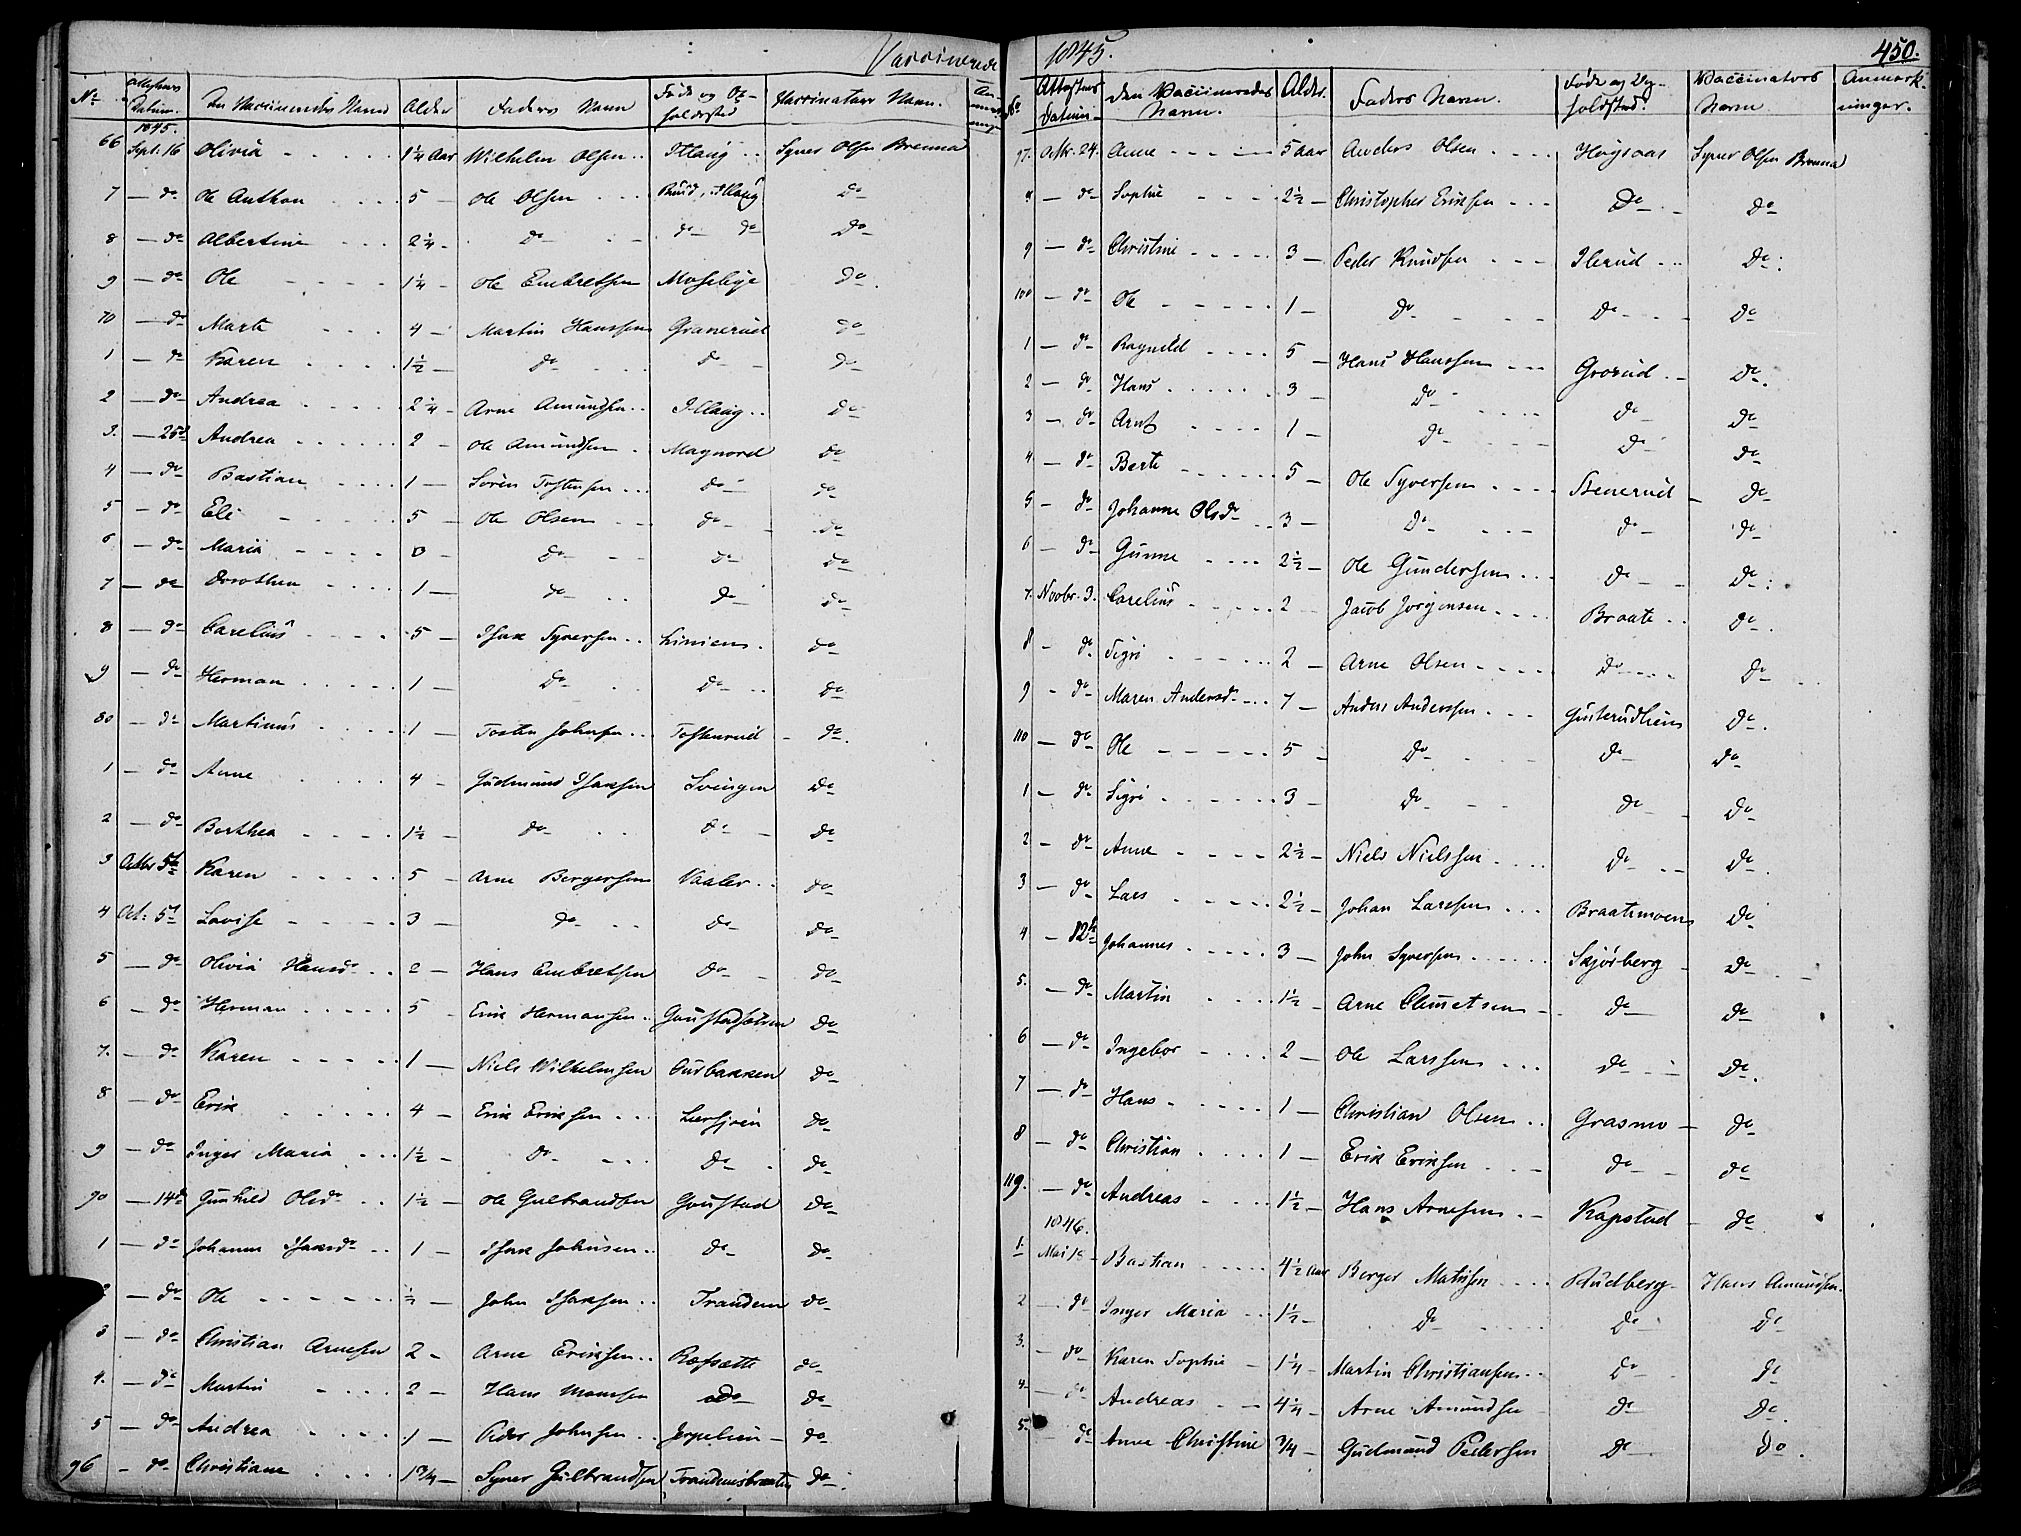 Vaccinerede
No
Attestens Datum.
Den Vaccineredes Navn
Alder
Faders Navn
Føde og Opholdssted
Vaccinateurs Navn.
1845.
66 Sept. 16 Olivia 1 1/4 Aar Wilhelm Olsen Haug Syver Olsen Brenna
7 — do Ole Anthon 5 — Ole Olsen Ruud, Haug do
8 — do Albertine 2 1/4 - do do do do
9 — do Ole 1 1/4 - Ole Embretsen Moseby do
70 — do Marte 4 — Martin Hanssen Granerud do
1 — do Karen 1 1/2 — do do do
2 — do Andrea 2 1/4 - Arne Amundsen Haug do
3. — 25de Andrea 2 - Ole Amundsen Magnord do
4 — do Bastian 1 — Sören Tostensen do do
5 — do Eli 5 — Ole Olsen do do
6 — do Maria 3 — do do do
7 — do Dorothea 1 — do do do
8 — do Carelius 5 — Isak Syversen Linien do
9 — do Herman 1 — do do do
80 — do Martinus 1 — Tosten Johnsen Tostenrud do
1 — do Anne 4 — Gudmund Isaksen Svingen do
2 — do Berthea 1 1/2 — do do do
3 Octbr 5te Karen 5 — Arne Bergersen Vaaler do
4 Oct: 5te Lovise 3 — do do do
5 — do Olivia Hansdr 2 — Hans Embretsen do do
6 — do Herman 5 — Erik Hermansen do
7. — do Karen 1 — Niels Wilhelmsen Aurbakken do
8 — do Erik 4 — Erik Eriksen Leersjöen do
9 — do Inger Maria 1 1/2 — do do do
90 — 14de Gunhild Olsdr 1 1/2 — Ole Gulbrandsen Goustad do
1 — do Johanne Isaksdr 1 — Isak Johnsen do do
2 — do Ole 1/2 — John Isaksen Trandem do
3 — do Christian Arnesen 2 - Arne Eriksen Ræfsætte do
4. — do Martin 2 — Hans Monssen do do
5 — do Andrea 1 — Peder Johnsen do
96 - do Christiane 1 3/4 — Syver Gulbrandsen Trandemsbraaten do
1845.
450.
No
Attestens Datum
Den Vaccineredes Navn.
Alder.
Faders Navn.
Føde og Opholdssted.
Vaccinators Navn.
Anmærkninger.
97. Octbr. 24. Anne 5 Aar Anders Olsen Høgsaas Syver Olsen Brenna
8 — do Sophie 2 1/2 — Christopher Eriksen do do
9 — do Christine 3 — Peder Knudsen Ilerud do
100 — do Ole 1 — do do do
1 — do Ragnild 5 — Hans Hanssen Grorud do
2 — do Hans 3 — do do do
3 — do Arnt 1 — do do do
4. — do Berte 5 — Ole Syversen Stenerud do
5 — do Johanne Olsdr 3 — do do do
6 — do Gunne 2 1/2 — Ole Gundersen do do
7. Novbr. 3. Carelius 2 Jacob Jørgensen Braate do
8 - do Sigri 2 — Arne Olsen do do
9 - do Maren Andersdr 7 — Anders Andersen Gusterudhem do
110 — do Ole 5 — do do do
1 — do Sigri 3 — do do do
2 - do Anne 2 1/2 — Niels Nielssen do do
3 — do Lars 2 1/2 — Johan Larssen Braatemoen do
4 — 12te Johannes 3 — John Syversen Skjørberg do
5. — do Martin 1 1/2 — Arne Clemetsen do do
6 — do Ingebor 2 — Ole Larssen do do
7 — do Hans 1 — Christian Olsen Grasmo do
8 — do Christian 1 — Erik Eriksen do do
119. — do Andreas 1 1/2 — Hans Arnesen Kapstad do
1846.
1. Mai 18 Bastian 4 1/2 Aar Berger Matissen Rudberg Hans Amundsen.
2 — do Inger Maria 1 1/2 — do do do
3. — do Karen Sophie 1 1/4 — Martin Christiansen do do
4 — do Andreas 4 1/4 — Arne Amundsen do do
5. — do Anne Christine 3/4 — Gudmund Pedersen do do